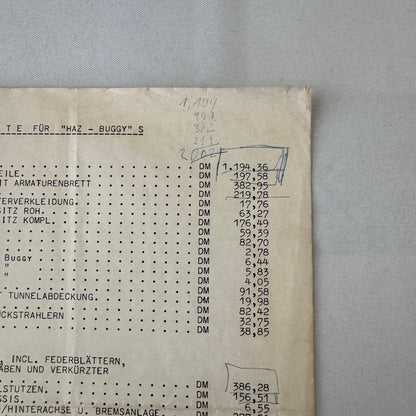 1,194
197
382
219
T E FÜR "HAZ - BUGGY" S
EILE. DM 1.194,36
DM 197,58
IT ARMATURENBRETT DM 382,95
DM 219,78
TERVERKLEIDUNG. DM 17,76
SITZ ROH. DM 63,27
SITZ KOMPL. DM 176,49
DM 59,39
DM 82,70
DM 2,78
BUGGY DM 6,44
" DM 5,83
" DM 4,05
DM 91,58
T TUNNELABDECKUNG. DM 19,98
DM 82,42
ÜCKSTRAHLERN DM 32,75
DM 38,85
, INCL. FEDERBLÄTTERN,
ABEN UND VERKÜRZTER
DM 386,28
LSTUTZEN. DM 156,51
SSIS. DM 6,55
/HINTERACHSE U. BREMSANLAGE. DM